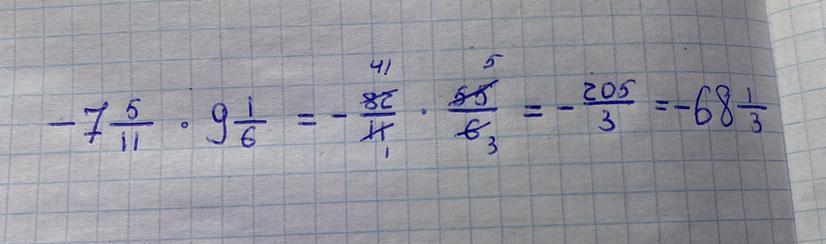 -7 5/11 · 9 1/6 = - 82/11 · 55/6 = - 205/3 = -68 1/3